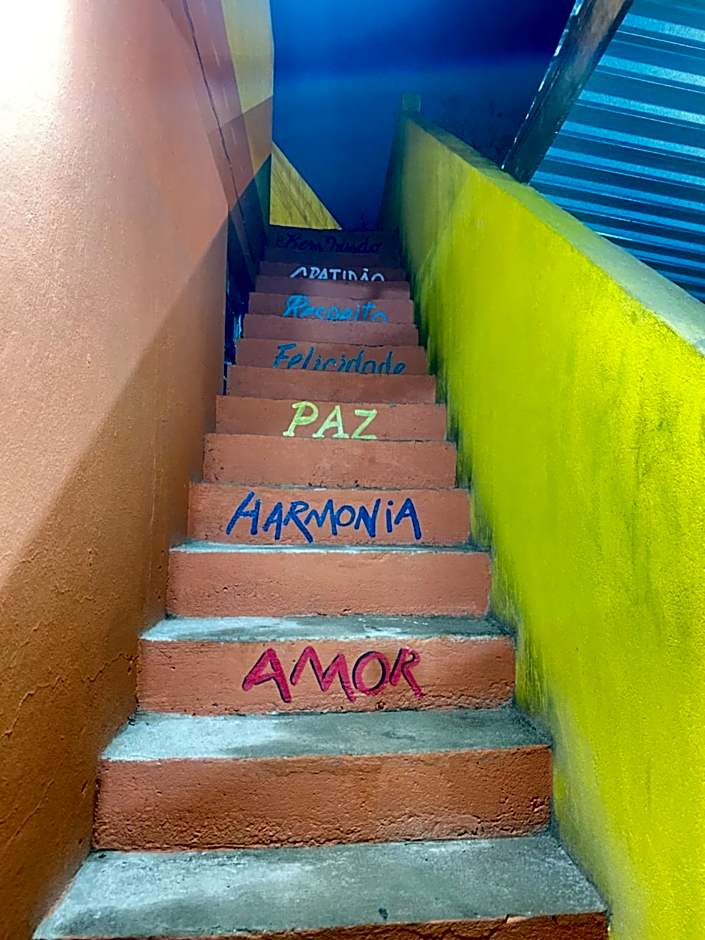 GRATIDÃO
Respeito
Felicidade
PAZ
HARMONiA
AMOR